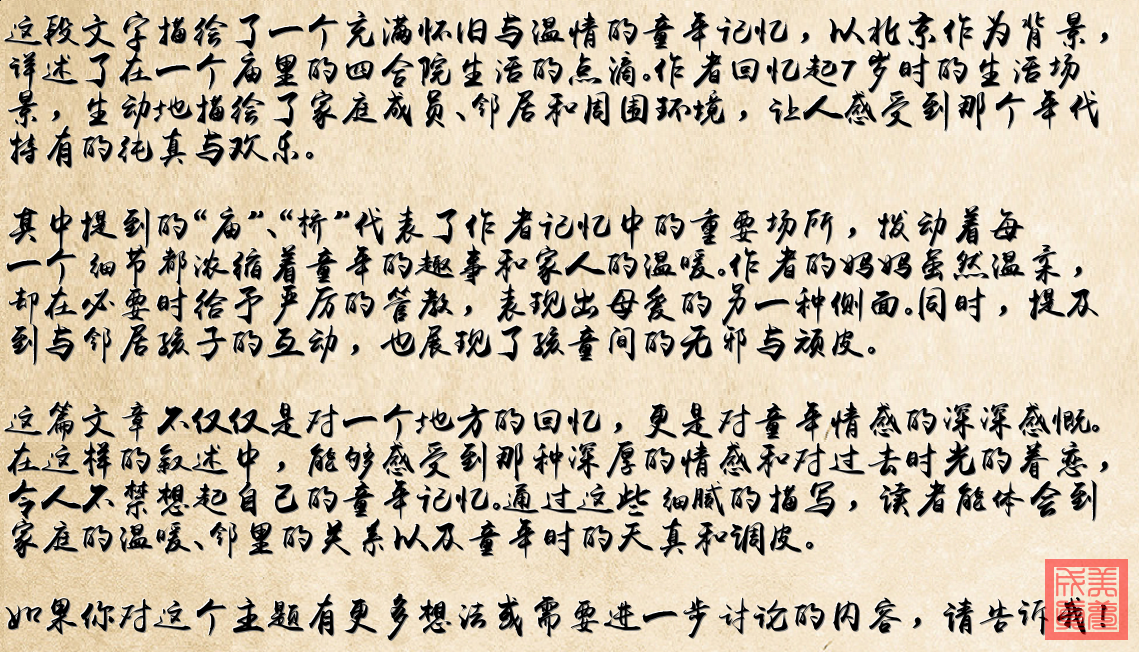 这段文字描绘了一个充满怀旧与温情的童年记忆，以北京作为背景，
详述了在一个庙里的四合院生活的点滴。作者回忆起7岁时的生活场
景，生动地描绘了家庭成员、邻居和周围环境，让人感受到那个年代
特有的纯真与欢乐。
其中提到的“庙”、“桥”代表了作者记忆中的重要场所，拨动着每
一个细节都浓缩着童年的趣事和家人的温暖。作者的妈妈虽然温柔，
却在必要时给予严厉的管教，表现出母爱的另一种侧面。同时，提及
到与邻居孩子的互动，也展现了孩童间的无邪与顽皮。
这篇文章不仅仅是对一个地方的回忆，更是对童年情感的深深感慨。
在这样的叙述中，能够感受到那种深厚的情感和对过去时光的眷恋，
令人不禁想起自己的童年记忆。通过这些细腻的描写，读者能体会到
家庭的温暖、邻里的关系以及童年时的天真和调皮。
如果你对这个主题有更多想法或需要进一步讨论的内容，请告诉我！